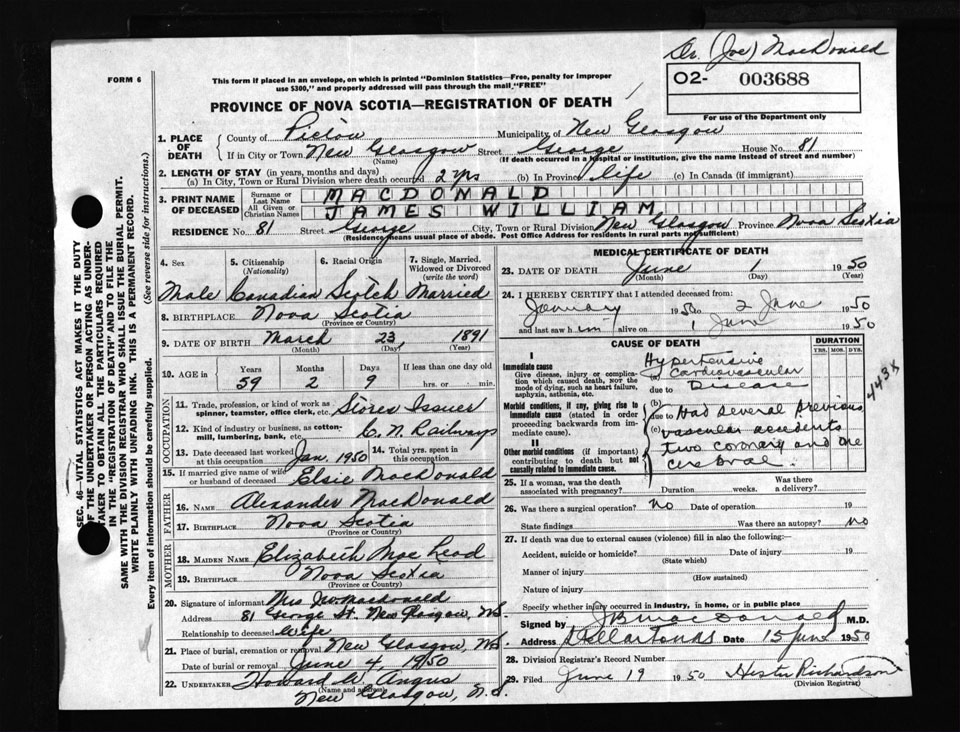 Dr. (Joe) MacDonald
FORM 6
This form if placed in an envelope, on which is printed "Dominion Statistics—Free, penalty for improper
use $300," and properly addressed will pass through the mail "FREE"
O2- 003688
For use of the Department only
PROVINCE OF NOVA SCOTIA—REGISTRATION OF DEATH
1. PLACE OF DEATH County of Pictou Municipality of New Glasgow
If in City or Town New Glasgow Street George House No. 81
(Name) (If death occurred in a hospital or institution, give the name instead of street and number)
2. LENGTH OF STAY (in years, months and days)
(a) In City, Town or Rural Division where death occurred 2 yrs (b) In Province life (c) In Canada (if immigrant)
3. PRINT NAME OF DECEASED Surname or Last Name MACDONALD
All Given or Christian Names JAMES WILLIAM
RESIDENCE No. 81 Street George City, Town or Rural Division New Glasgow Province Nova Scotia
(Residence means usual place of abode. Post Office Address for residents in rural parts not sufficient)
4. Sex 5. Citizenship (Nationality) 6. Racial Origin 7. Single, Married, Widowed or Divorced (write the word)
Male Canadian Scotch Married
8. BIRTHPLACE Nova Scotia
(Province or Country)
9. DATE OF BIRTH March 23, 1891
(Month) (Day) (Year)
10. AGE in Years Months Days If less than one day old
59 2 9 hrs. or min.
OCCUPATION
11. Trade, profession, or kind of work as spinner, teamster, office clerk, etc. Stores Issuer
12. Kind of industry or business, as cotton-mill, lumbering, bank, etc. C. N. Railways
13. Date deceased last worked at this occupation Jan. 1950 14. Total yrs. spent in this occupation
15. If married give name of wife or husband of deceased Elsie MacDonald
FATHER
16. NAME Alexander MacDonald
17. BIRTHPLACE Nova Scotia
MOTHER
18. MAIDEN NAME Elizabeth Mac Leod
19. BIRTHPLACE Nova Scotia
(Province or Country)
20. Signature of informant Mrs MacDonald
Address 81 George St. New Glasgow, N.S.
Relationship to deceased Wife
21. Place of burial, cremation or removal New Glasgow, N.S.
Date of burial or removal June 4, 1950
22. UNDERTAKER Howard W. Angus
(Name and address) New Glasgow, N.S.
MEDICAL CERTIFICATE OF DEATH
23. DATE OF DEATH June 1 1950
(Month) (Day) (Year)
24. I HEREBY CERTIFY that I attended deceased from:
January 1950 to 2 June 1950
and last saw him alive on 1 June 1950
CAUSE OF DEATH DURATION
YRS. MOS. DYS.
I
Immediate cause
Give disease, injury or complication which caused death, NOT the mode of dying, such as heart failure, asphyxia, asthenia, etc.
(a) Hypertensive Cardiovascular Disease
due to
443X
Morbid conditions, if any, giving rise to immediate cause (stated in order proceeding backwards from immediate cause).
(b)
due to
(c)
Had several previous vascular accidents two coronary and one cerebral.
II
Other morbid conditions (if important) contributing to death but not causally related to immediate cause.
25. If a woman, was the death associated with pregnancy? Duration weeks. Was there a delivery?
26. Was there a surgical operation? No Date of operation 19
State findings Was there an autopsy? No
27. If death was due to external causes (violence) fill in also the following:
Accident, suicide or homicide? Date of injury 19
(State which)
Manner of injury
(How sustained)
Nature of injury
Specify whether injury occurred in industry, in home, or in public place
Signed by J B MacDonald M.D.
Address Stellarton NS Date 15 June 1950
28. Division Registrar's Record Number
29. Filed June 19 1950 Hester Richardson
(Division Registrar)
SEC. 46—VITAL STATISTICS ACT MAKES IT THE DUTY
OF THE UNDERTAKER OR PERSON ACTING AS UNDER-
TAKER TO OBTAIN ALL THE PARTICULARS REQUIRED
IN THE "REGISTRATION OF DEATH" AND TO FILE THE
SAME WITH THE DIVISION REGISTRAR WHO SHALL ISSUE THE BURIAL PERMIT.
WRITE PLAINLY WITH UNFADING INK. THIS IS A PERMANENT RECORD.
Every item of information should be carefully supplied. (See reverse side for instructions.)